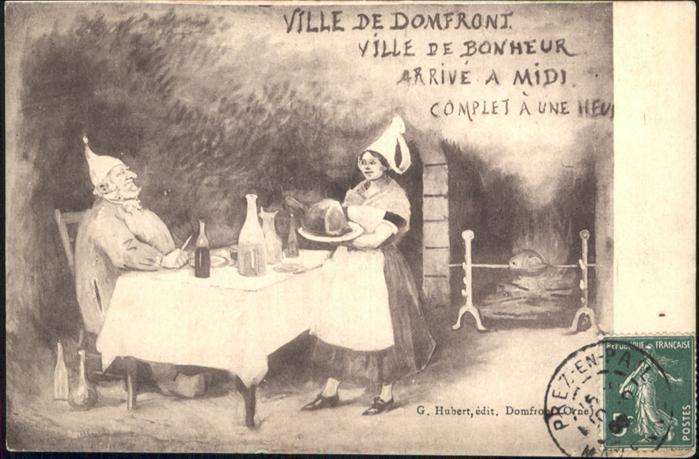 VILLE DE DOMFRONT.
VILLE DE BONHEUR
ARRIVÉ A MIDI.
COMPLET À UNE HEU
G. Hubert, édit. Domfront (Orne)
REPUBLIQUE FRANÇAISE
POSTES
5
PREZ-EN-PAIL